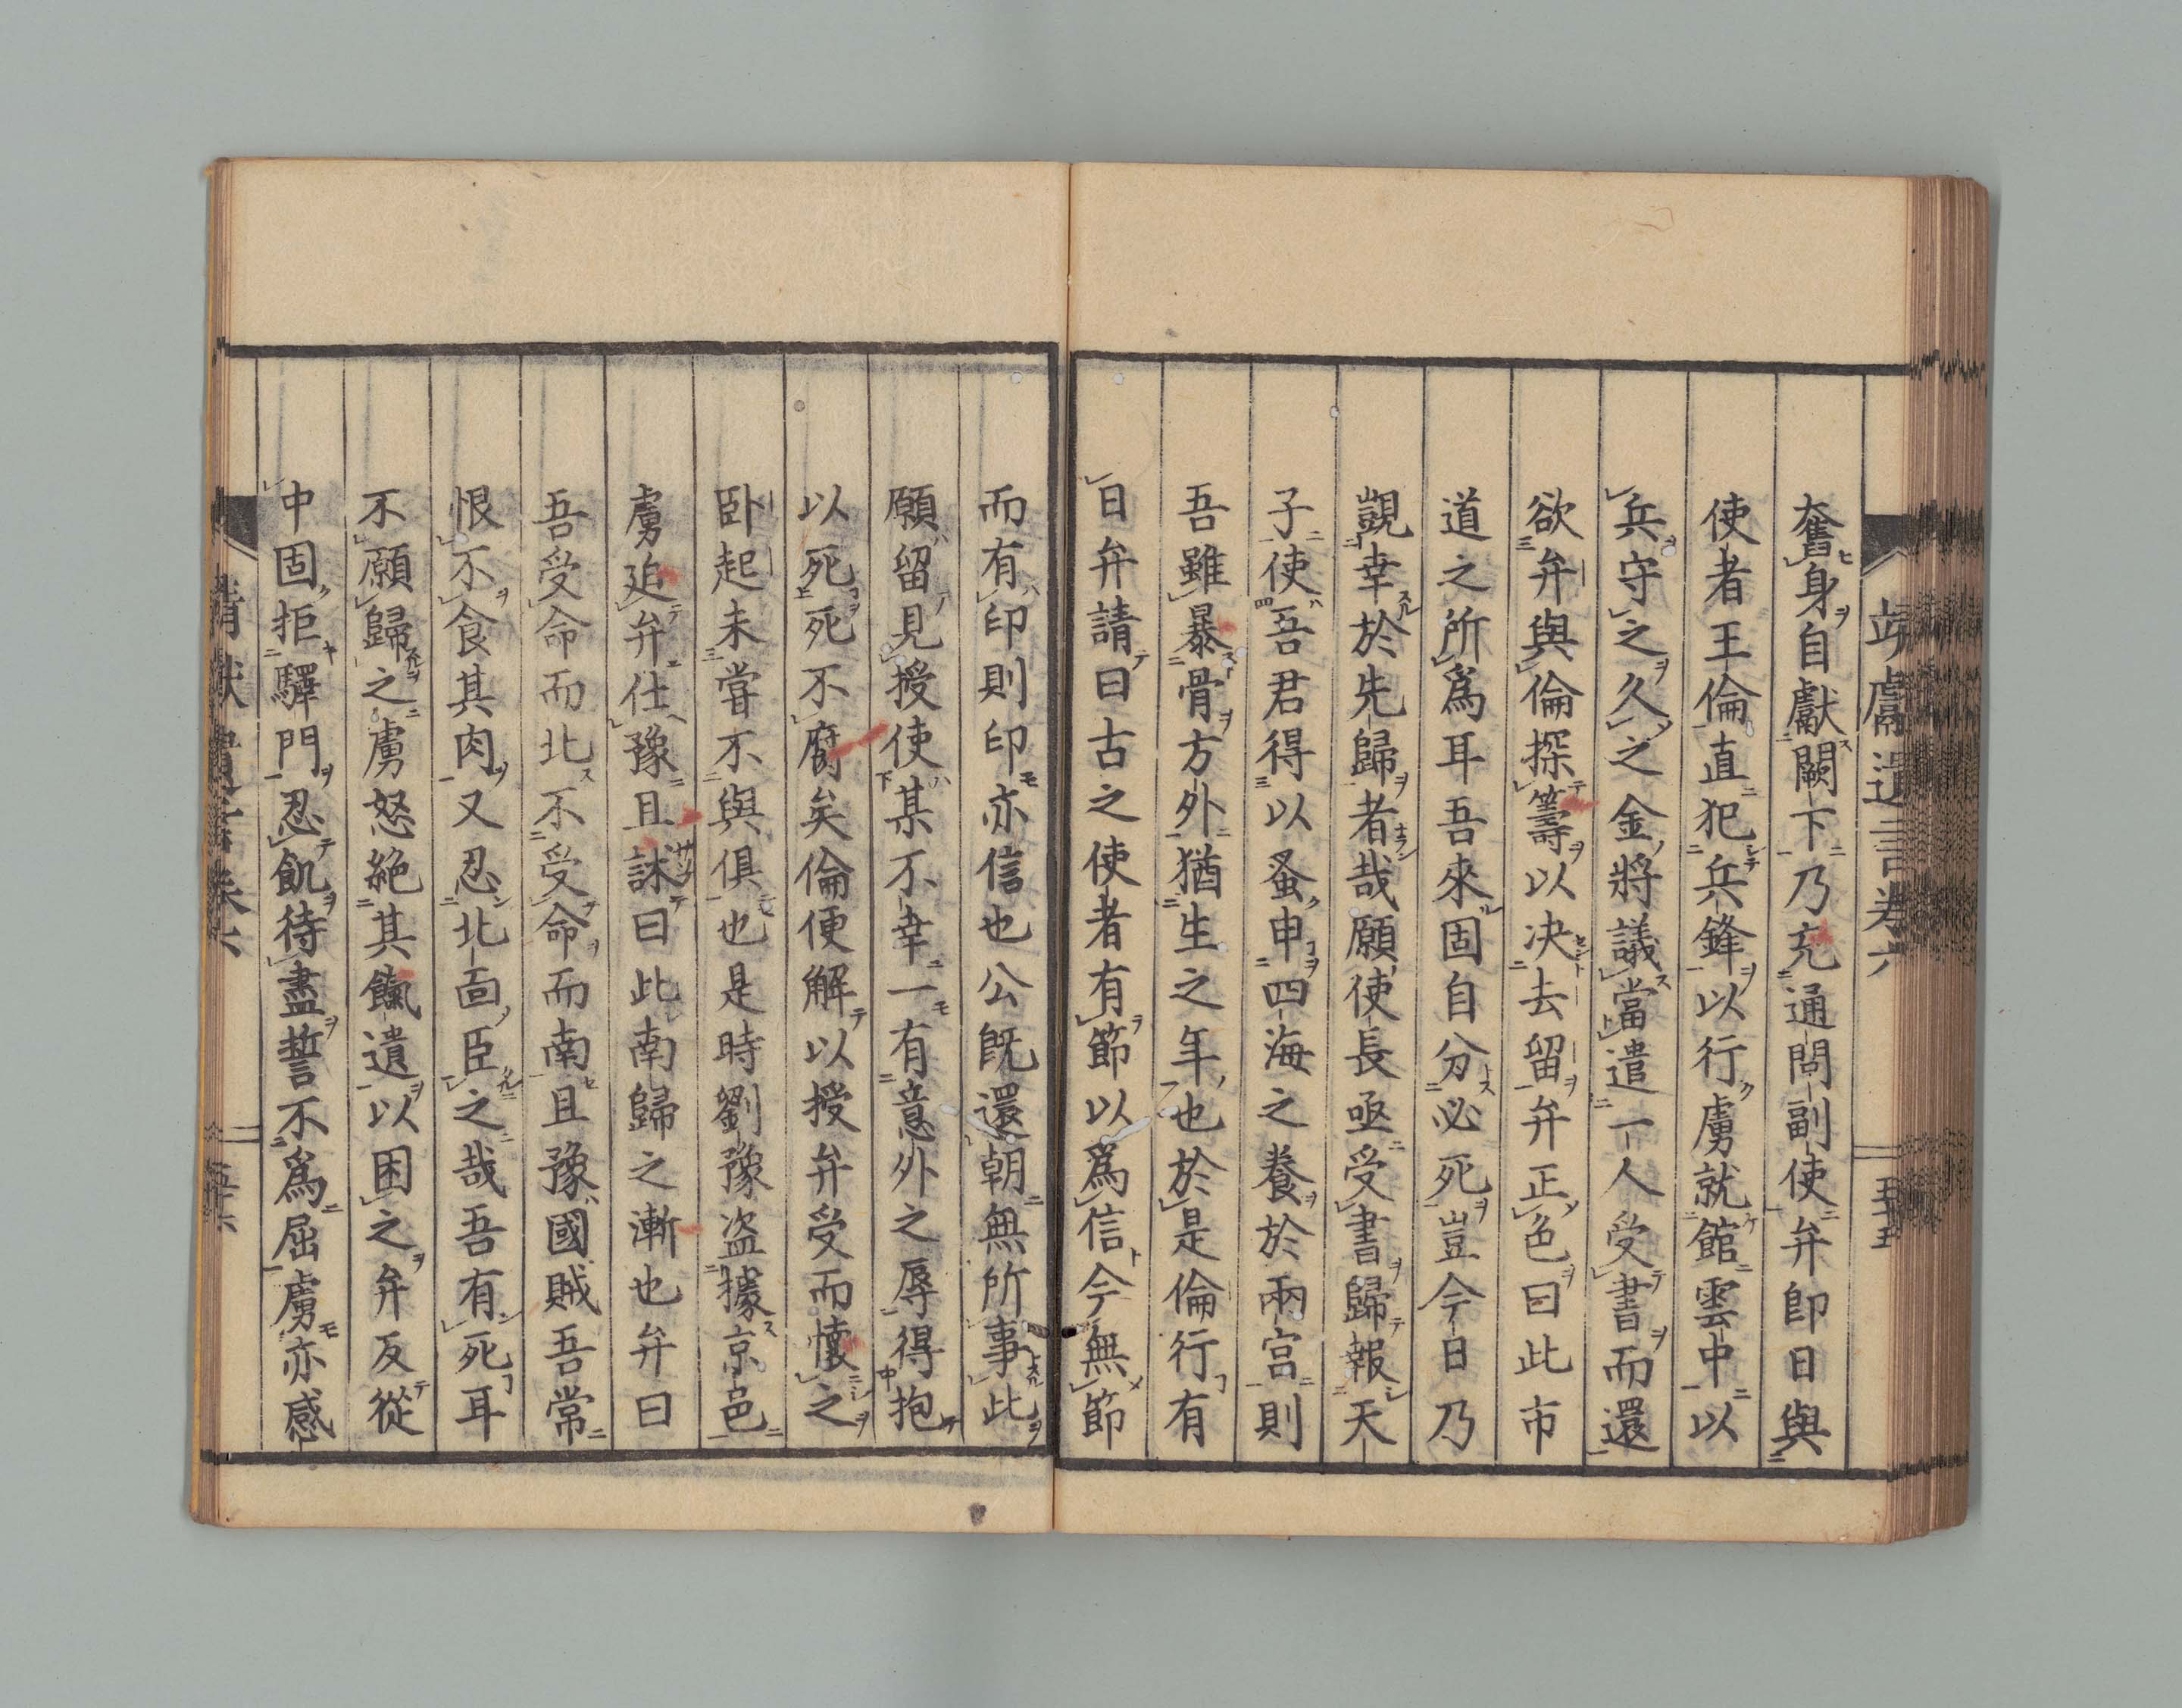 奮身自獻闕下乃充通問副使弁即日與
使者王倫直犯兵鋒以行虜就館雲中以
兵守之久之金將議當遣一人受書而還
欲弁與倫探籌以決去留弁正色曰此市
道之所爲耳吾來固自分必死豈今日乃
覬幸於先歸者哉願使長亟受書歸報天
子使吾君得以蚤申四海之養於兩宮則
吾雖暴骨方外猶生之年也於是倫行有
日弁請曰古之使者有節以爲信今無節
而有印則印亦信也公既還朝無所事此
願留見授使某不幸一有意外之辱得抱
以死死不腐矣倫便解以授弁受而懷之
卧起未嘗不與俱也是時劉豫盜據京邑
虜迫弁仕豫且訹曰此南歸之漸也弁曰
吾受命而北不受命而南且豫國賊吾常
恨不食其肉又忍北面臣之哉吾有死耳
不願歸之虜怒絶其餼遺以困之弁反從
中固拒驛門忍飢待盡誓不爲屈虜亦感